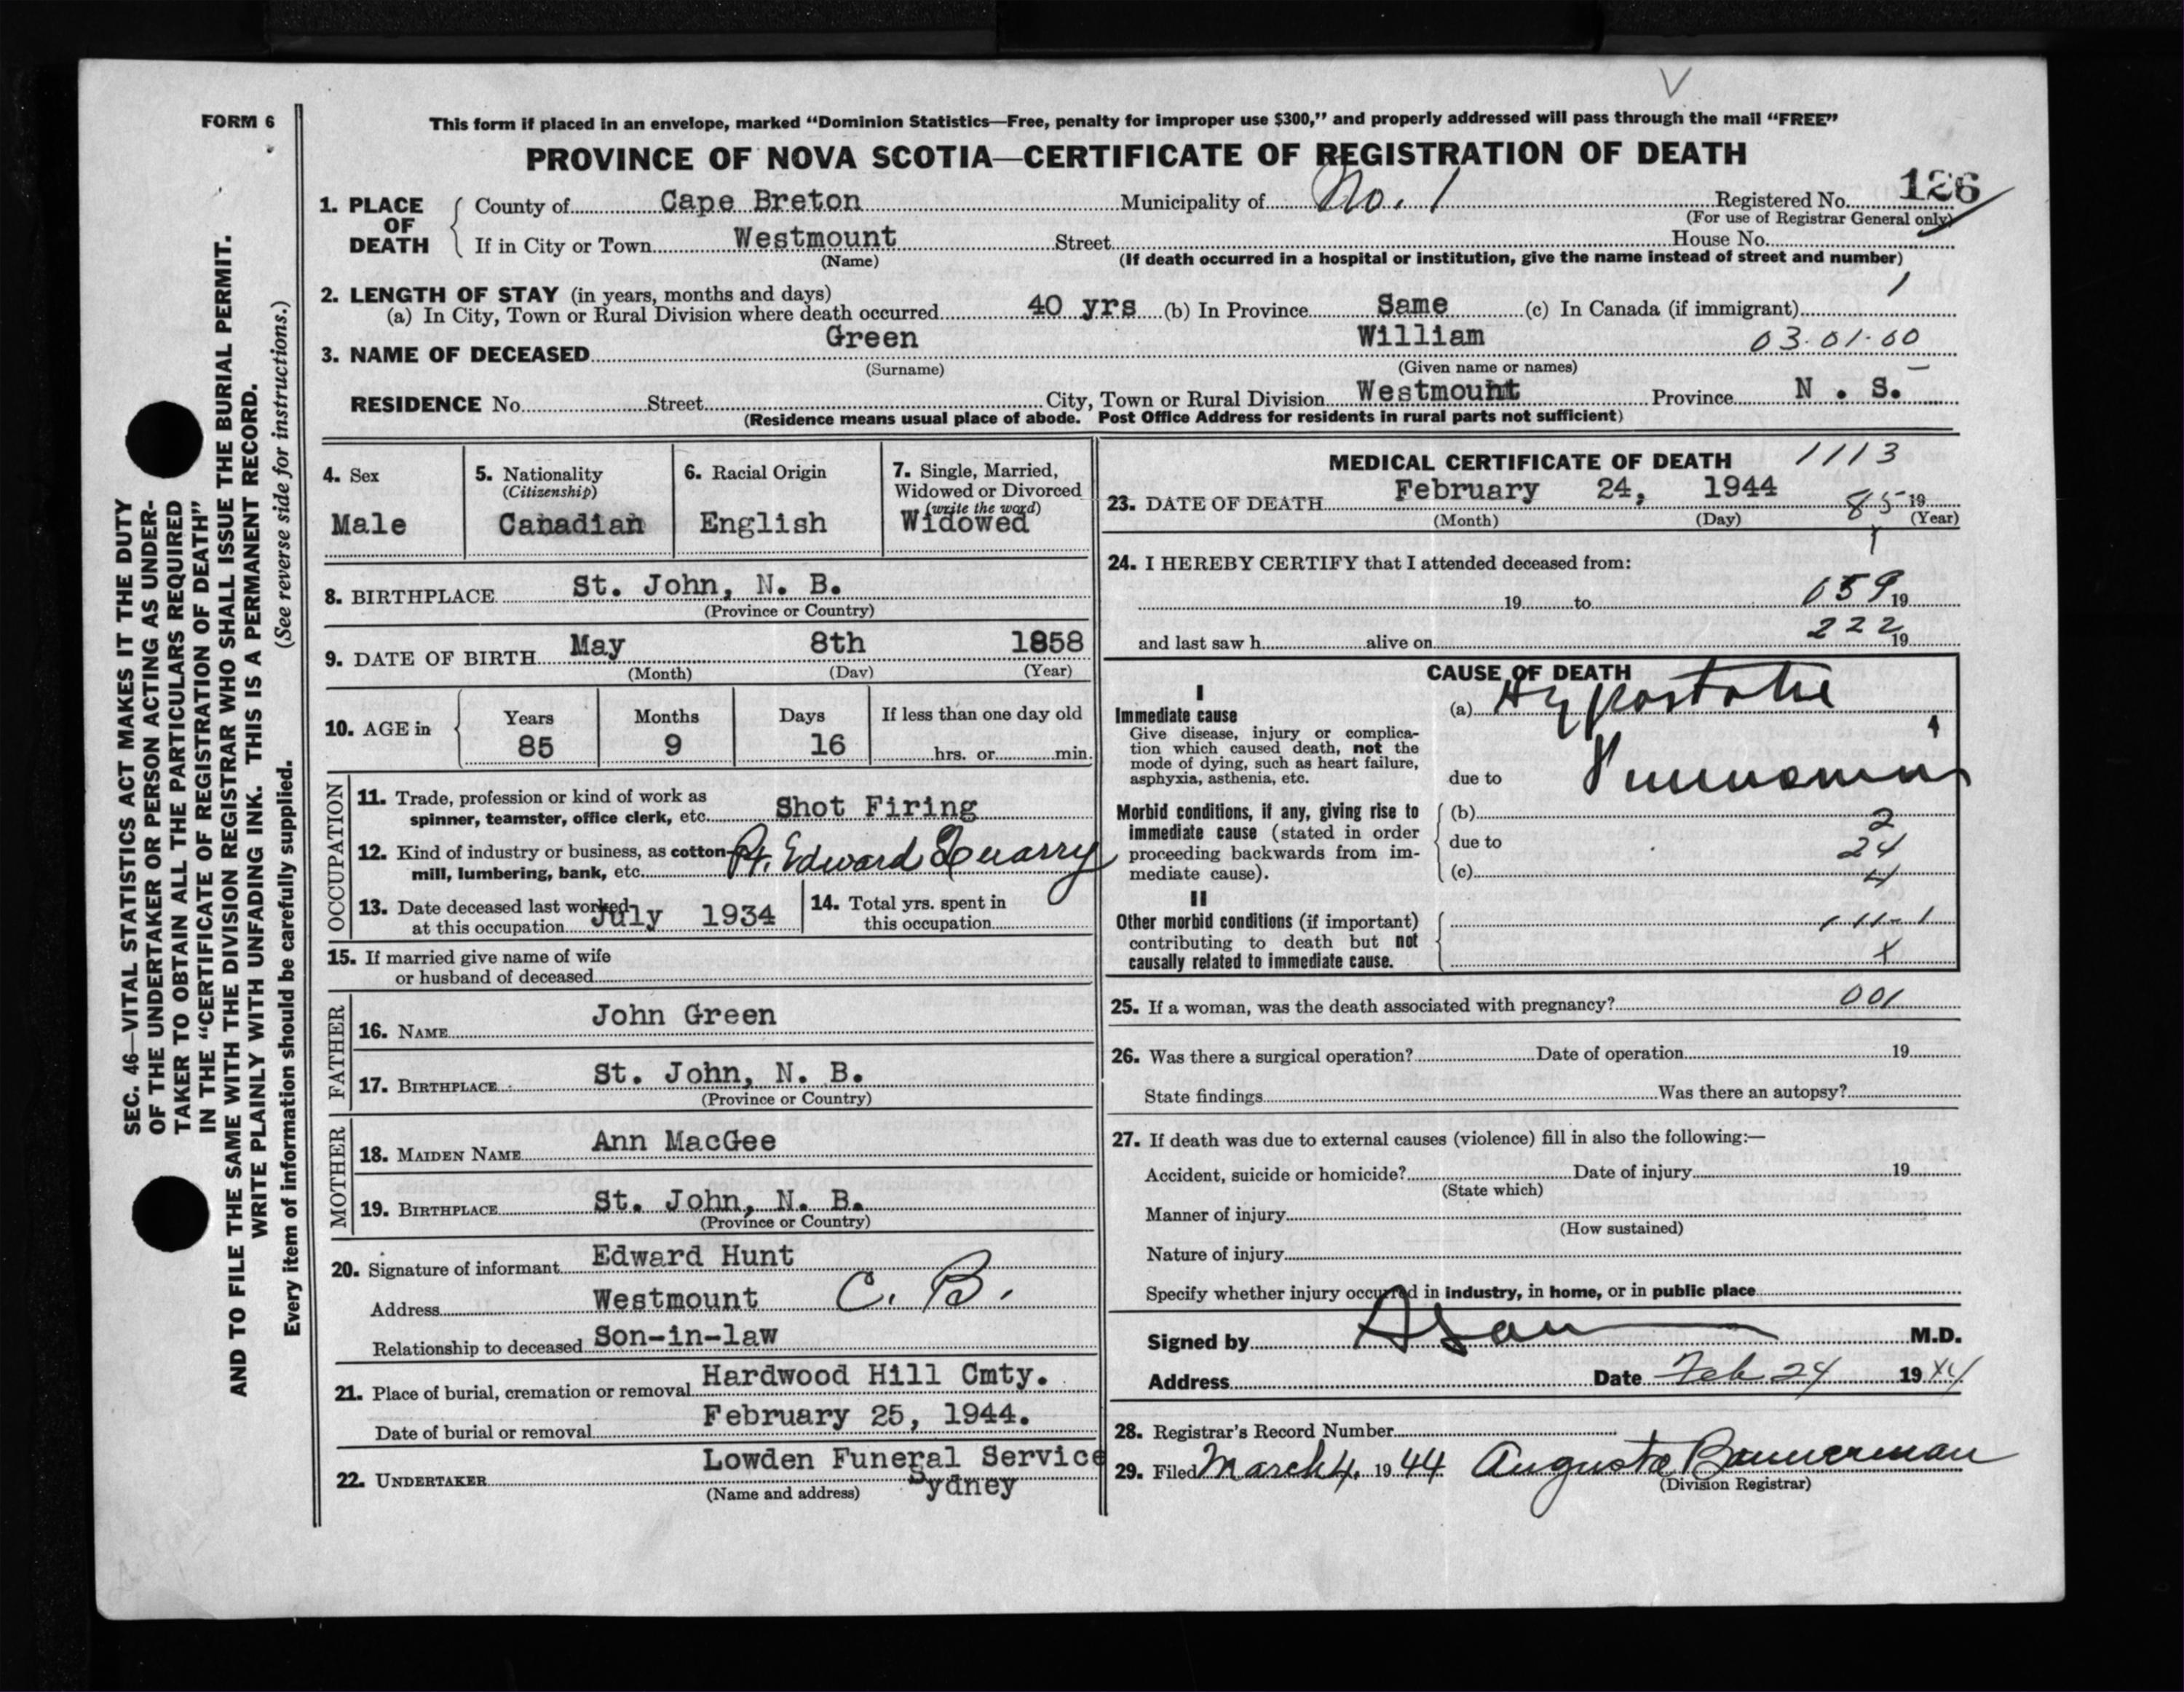 FORM 6
This form if placed in an envelope, marked "Dominion Statistics—Free, penalty for improper use $300," and properly addressed will pass through the mail "FREE"
PROVINCE OF NOVA SCOTIA—CERTIFICATE OF REGISTRATION OF DEATH
1. PLACE OF DEATH
County of Cape Breton Municipality of No. 1 Registered No. 126
(For use of Registrar General only)
If in City or Town Westmount Street House No.
(Name) (If death occurred in a hospital or institution, give the name instead of street and number)
2. LENGTH OF STAY (in years, months and days) 1
(a) In City, Town or Rural Division where death occurred 40 yrs (b) In Province Same (c) In Canada (if immigrant)
3. NAME OF DECEASED Green William 03.01.60
(Surname) (Given name or names)
RESIDENCE No. Street City, Town or Rural Division Westmount Province N. S.
(Residence means usual place of abode. Post Office Address for residents in rural parts not sufficient)
SEC. 46—VITAL STATISTICS ACT MAKES IT THE DUTY
OF THE UNDERTAKER OR PERSON ACTING AS UNDER-
TAKER TO OBTAIN ALL THE PARTICULARS REQUIRED
IN THE "CERTIFICATE OF REGISTRATION OF DEATH"
AND TO FILE THE SAME WITH THE DIVISION REGISTRAR WHO SHALL ISSUE THE BURIAL PERMIT.
WRITE PLAINLY WITH UNFADING INK. THIS IS A PERMANENT RECORD.
Every item of information should be carefully supplied. (See reverse side for instructions.)
4. Sex
Male
5. Nationality
(Citizenship)
Canadian
6. Racial Origin
English
7. Single, Married,
Widowed or Divorced
(write the word)
Widowed
8. BIRTHPLACE St. John, N. B.
(Province or Country)
9. DATE OF BIRTH May 8th 1858
(Month) (Day) (Year)
10. AGE in Years Months Days If less than one day old
85 9 16 hrs. or min.
OCCUPATION
11. Trade, profession or kind of work as
spinner, teamster, office clerk, etc. Shot Firing
12. Kind of industry or business, as cotton
mill, lumbering, bank, etc. Pt. Edward Quarry
13. Date deceased last worked
at this occupation July 1934
14. Total yrs. spent in
this occupation
15. If married give name of wife
or husband of deceased
FATHER
16. NAME John Green
17. BIRTHPLACE St. John, N. B.
(Province or Country)
MOTHER
18. MAIDEN NAME Ann MacGee
19. BIRTHPLACE St. John, N. B.
(Province or Country)
20. Signature of informant Edward Hunt
Address Westmount C. B.
Relationship to deceased Son-in-law
21. Place of burial, cremation or removal Hardwood Hill Cmty.
Date of burial or removal February 25, 1944.
22. UNDERTAKER Lowden Funeral Service
(Name and address) Sydney
MEDICAL CERTIFICATE OF DEATH 1113
23. DATE OF DEATH February 24, 1944 85 19
(Month) (Day) (Year)
24. I HEREBY CERTIFY that I attended deceased from:
19 to 159 19
and last saw h alive on 222 19
CAUSE OF DEATH
I
Immediate cause
Give disease, injury or complica-
tion which caused death, not the
mode of dying, such as heart failure,
asphyxia, asthenia, etc.
(a) Hypostatic
due to Pneumonia
4
Morbid conditions, if any, giving rise to
immediate cause (stated in order
proceeding backwards from im-
mediate cause).
(b) 2
due to 24
(c) 4
II
Other morbid conditions (if important)
contributing to death but not
causally related to immediate cause.
1-11-1
X
25. If a woman, was the death associated with pregnancy? 001
26. Was there a surgical operation? Date of operation 19
State findings Was there an autopsy?
27. If death was due to external causes (violence) fill in also the following:—
Accident, suicide or homicide? Date of injury 19
(State which)
Manner of injury
(How sustained)
Nature of injury
Specify whether injury occurred in industry, in home, or in public place
Signed by M.D.
Address Date Feb 24 19
28. Registrar's Record Number
29. Filed March 4, 19 44 Augusta Bannerman
(Division Registrar)